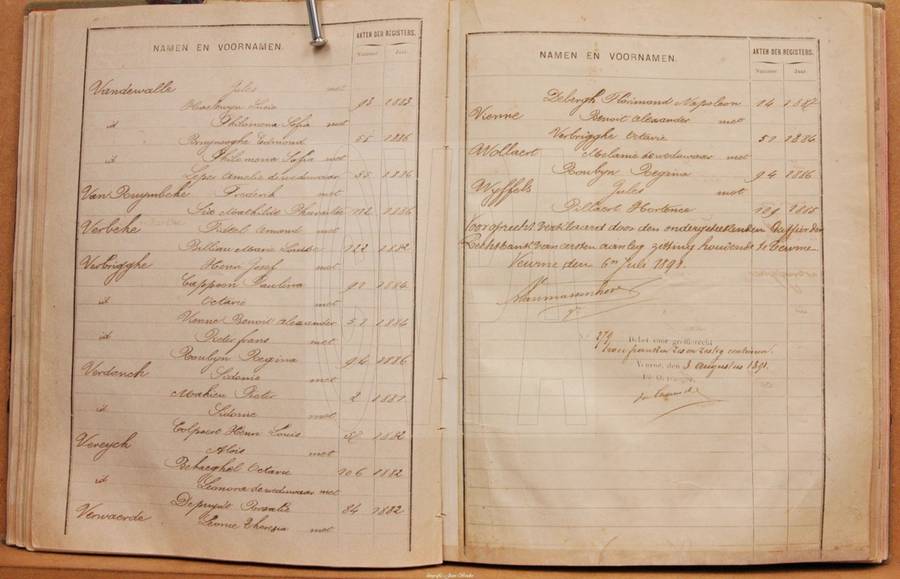 NAMEN EN VOORNAMEN.
AKTEN DER REGISTERS.
Nummer Jaar.
Vandewalle Jules met
Lucie 93 1883
id Philomena Sofia met
Edmond 55 1886
id Philomena Sofia met
Lepez Amelie de weduwaar 55 1886
Van Ruymbeke Frederik met
Mathilde 112 1886
Verbeke Pittel Amond met
Billiau Marie Louise 122 1882
Verbrigghe Henri Josef met
Cappoen Paulina 91 1884
id Octavie met
Vienne Benoit Alexander 51 1884
id Pieter frans met
Roubyn Regina 94 1886
Verdonck Sidonie met
Mahieu Pieter 2 1881
id Sidonie met
Colpaert Henri Louis 1882
Vereyck Alois met
Behaeghel Octavie 106 1882
id Leonora de weduwaar met
Depuydt Rosalie 84 1882
Verwaerde Leonie Theresia met
NAMEN EN VOORNAMEN.
AKTEN DER REGISTERS.
Nummer Jaar.
Debergh Napoleon 14 1887
Vienne Benoit Alexander met
Verbrigghe Octavie 51 1884
Wollaert Melanie de weduwaar met
Roubyn Regina 94 1886
Wyffels Jules met
Pillaert Hortence 109 1885
Voor oprecht verklaard door den ondergeteekenden Griffier der
Rechtbank van eersten aanleg zitting houdende te Veurne
Veurne den 6en Juli 1891.
279
Debet voor greffierecht
franken zes en zestig centimen
Veurne, den 3 Augustus 1891.
De Ontvanger,